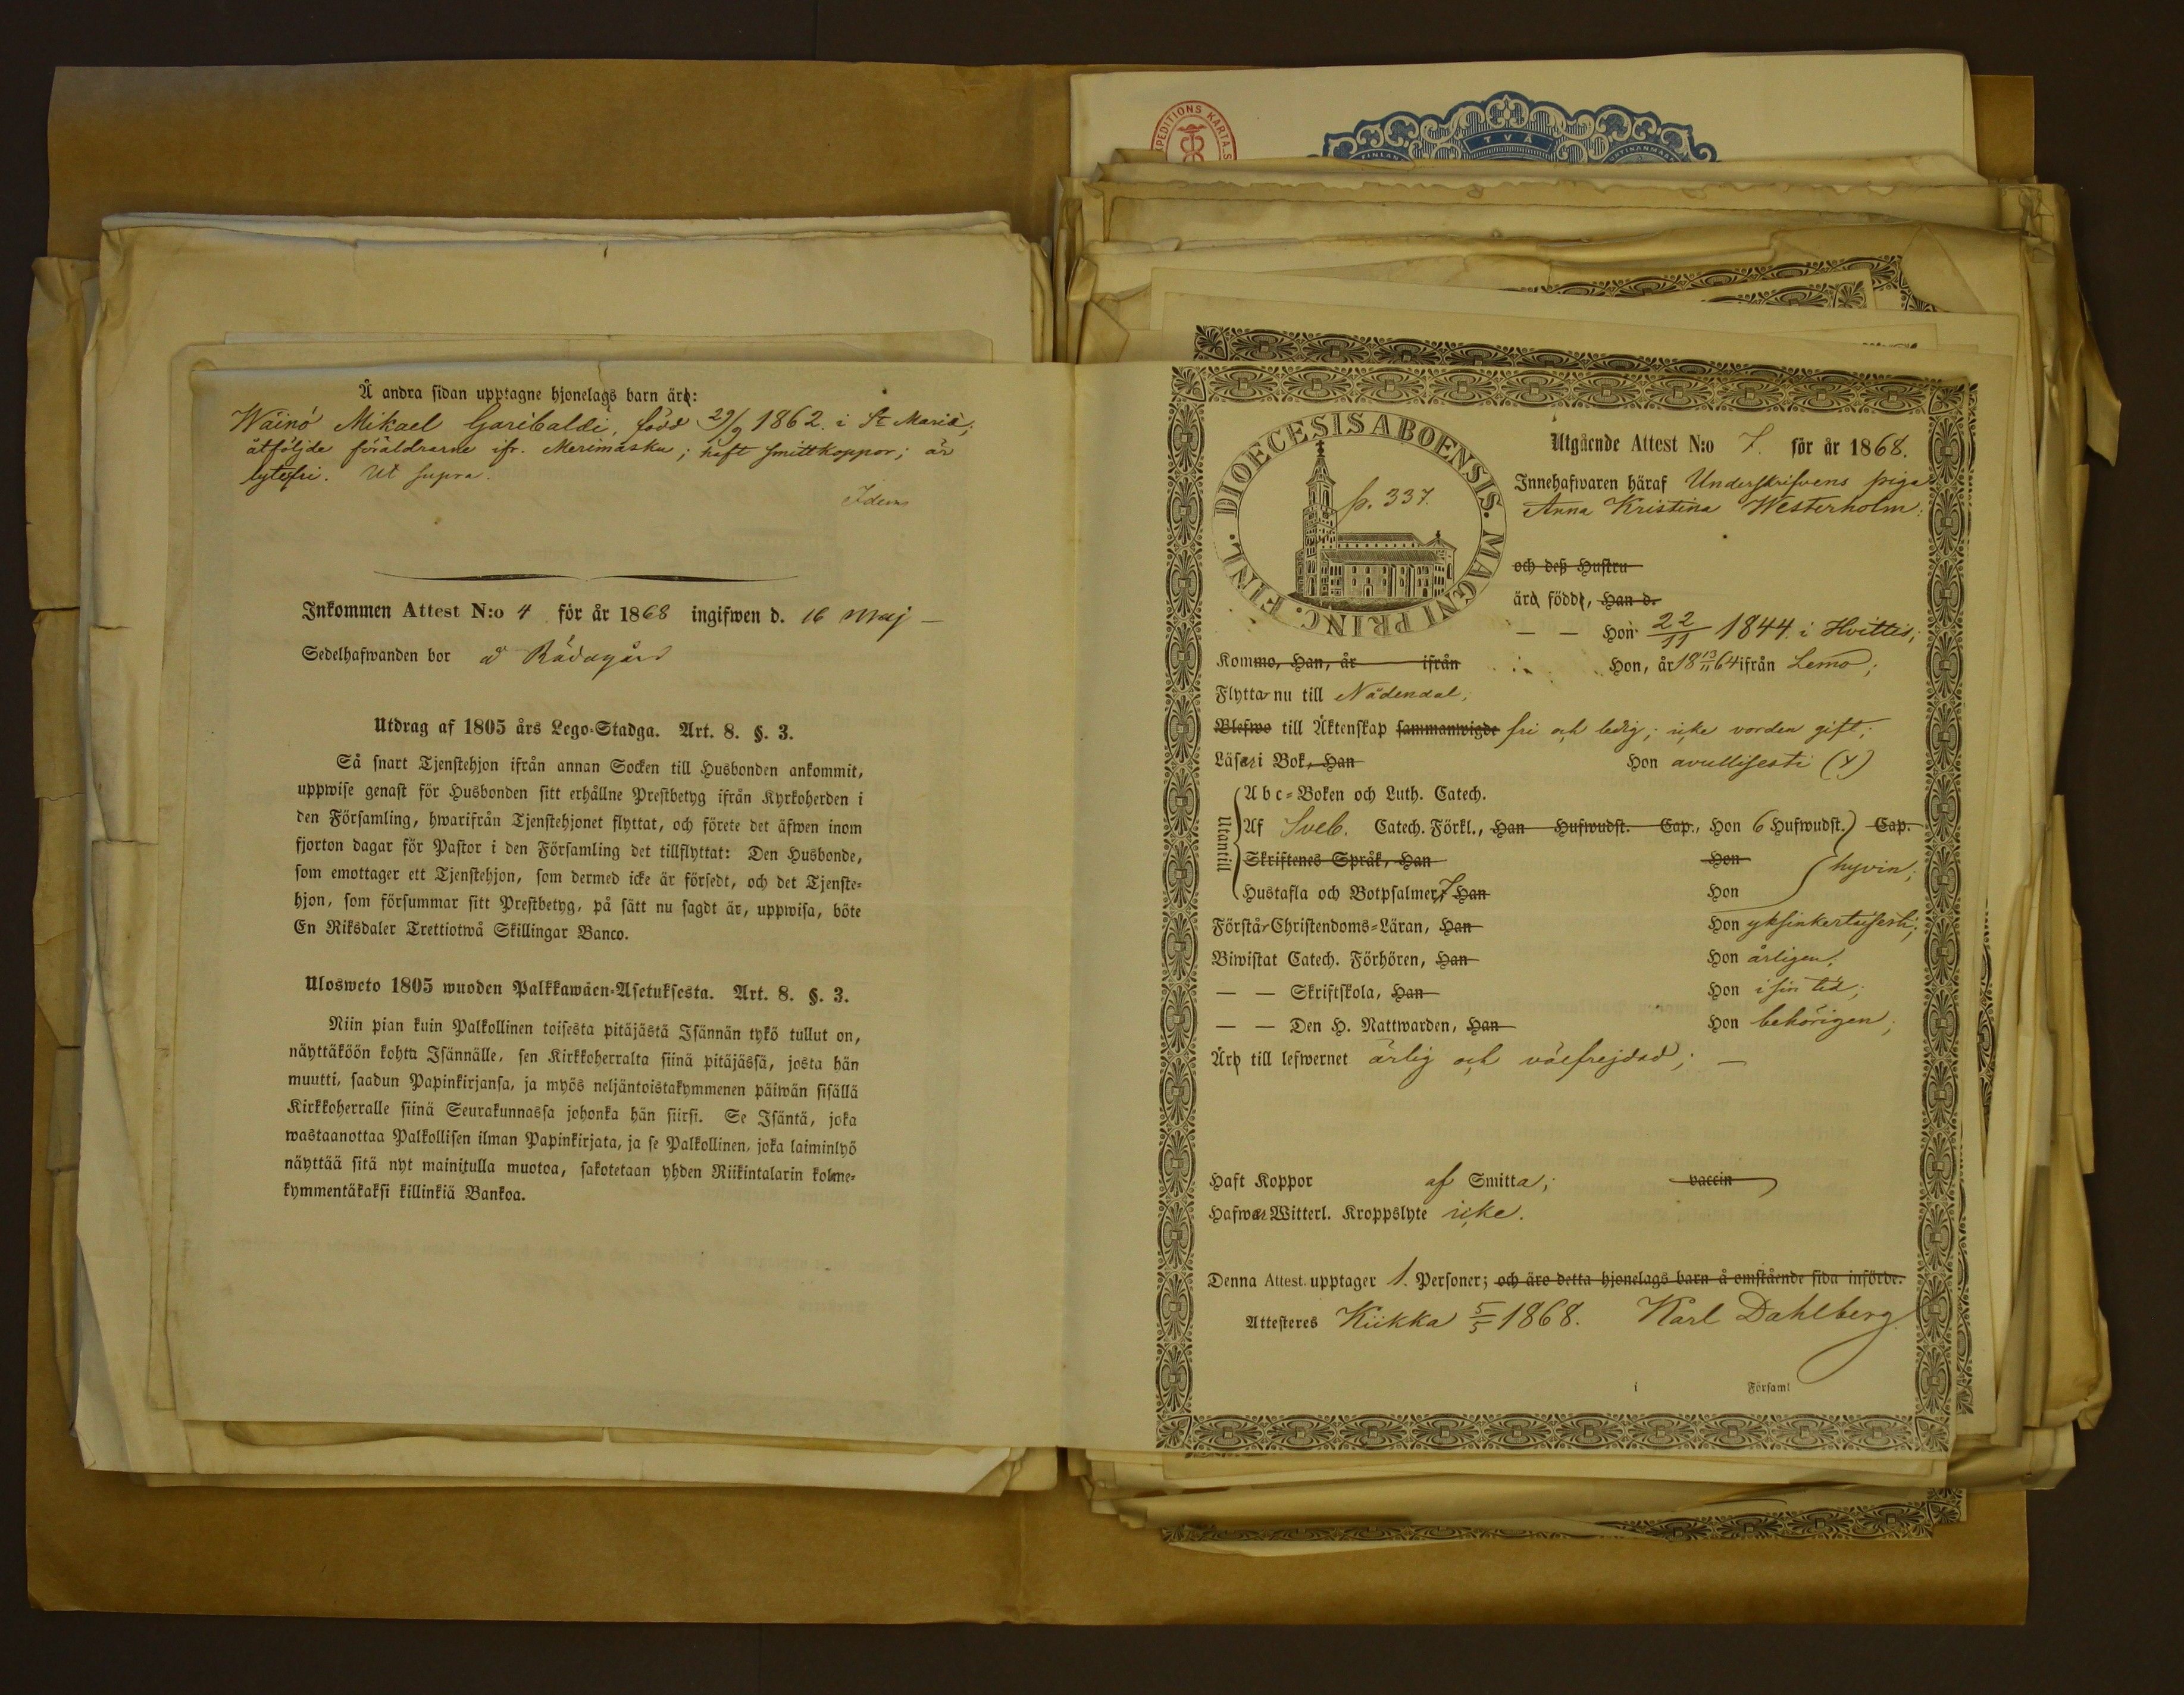 Å andra sidan upptagne hjonelags barn äro:
Wäinö Mikael Garibaldi, född 29/9 1862. i St Mariæ;
åtföljde föräldrarne ifr. Merimasku; haft smittkoppor; är
lytesfri. Ut supra.
Idem
Inkommen Attest N:o 4 för år 1868 ingifwen d. 16 Maj –
Sedelhafwanden bor å Rådagård
Utdrag af 1805 års Lego-Stadga. Art. 8. §. 3.
Så snart Tjenstehjon ifrån annan Socken till Husbonden ankommit,
uppwise genast för Husbonden sitt erhållne Prestbetyg ifrån Kyrkoherden i
den Församling, hwarifrån Tjenstehjonet flyttat, och förete det äfwen inom
fjorton dagar för Pastor i den Församling det tillflyttat: Den Husbonde,
som emottager ett Tjenstehjon, som dermed icke är försedt, och det Tjenste-
hjon, som försummar sitt Prestbetyg, på sätt nu sagdt är, uppwisa, böte
En Riksdaler Trettiotwå Skillingar Banco.
Ulosweto 1805 wuoden Palkkawäen-Asetuksesta. Art. 8. §. 3.
Niin pian kuin Palkollinen toisesta pitäjästä Isännän tykö tullut on,
näyttäköön kohta Isännälle, sen Kirkkoherralta siinä pitäjässä, josta hän
muutti, saadun Papinkirjansa, ja myös neljäntoistakymmenen päiwän sisällä
Kirkkoherralle siinä Seurakunnassa johonka hän siirsi. Se Isäntä, joka
wastaanottaa Palkollisen ilman Papinkirjata, ja se Palkollinen, joka laiminlyö
näyttää sitä nyt mainitulla muotoa, sakotetaan yhden Riikintalarin kolme-
kymmentäkaksi killinkiä Bankoa.
TVÅ
DIOECESIS ABOENSIS. MAGNI PRINC. FINL.
p. 337.
Utgående Attest N:o 7. för år 1868.
Innehafwaren häraf Underskrifvens piga
Anna Kristina Westerholm;
och deß Hustru
äro född, Han d.
— — Hon 22/11 1844. i Hvittis;
Kommo, Han, år ifrån Hon, år 18 13/11 64 ifrån Lemo;
Flyttar nu till Nådendal;
Blefwo till Äktenskap sammanwigde fri och ledig; icke vorden gift;
Läser i Bok, Han Hon avullisesti (4)
Utantill
Abc-Boken och Luth. Catech.
Af Sveb. Catech. Förkl., Han Hufwudst. Cap., Hon 6 Hufwudst. Cap.
Skriftenes Språk, Han Hon hyvin;
Hustafla och Botpsalmer, 7 Han Hon
Förstår Christendoms-Läran, Han Hon yksinkertaisesti;
Biwistat Catech. Förhören, Han Hon årligen;
— — Skriftskola, Han Hon i sin tid;
— — Den H. Nattwarden, Han Hon behörigen;
Är till lefwernet ärlig och välfrejdad; —
Haft Koppor af Smitta; vaccin
Hafwer Witterl. Kroppslyte icke.
Denna Attest. upptager 1. Personer; och äro detta hjonelags barn å omstående sida införde.
Attesteres Kiikka 5/5 1868. Karl Dahlberg.
i Församl